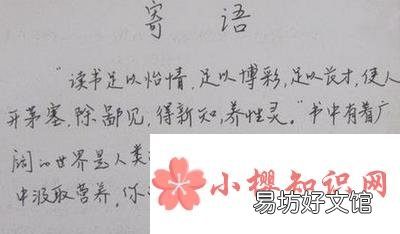 寄语
"读书足以怡情，足以博彩，足以长才，使人
开茅塞，除鄙见，得新知，养性灵。"书中有着广
阔的世界是人类
中汲取营养，你
小樱知识网
易坊好文馆